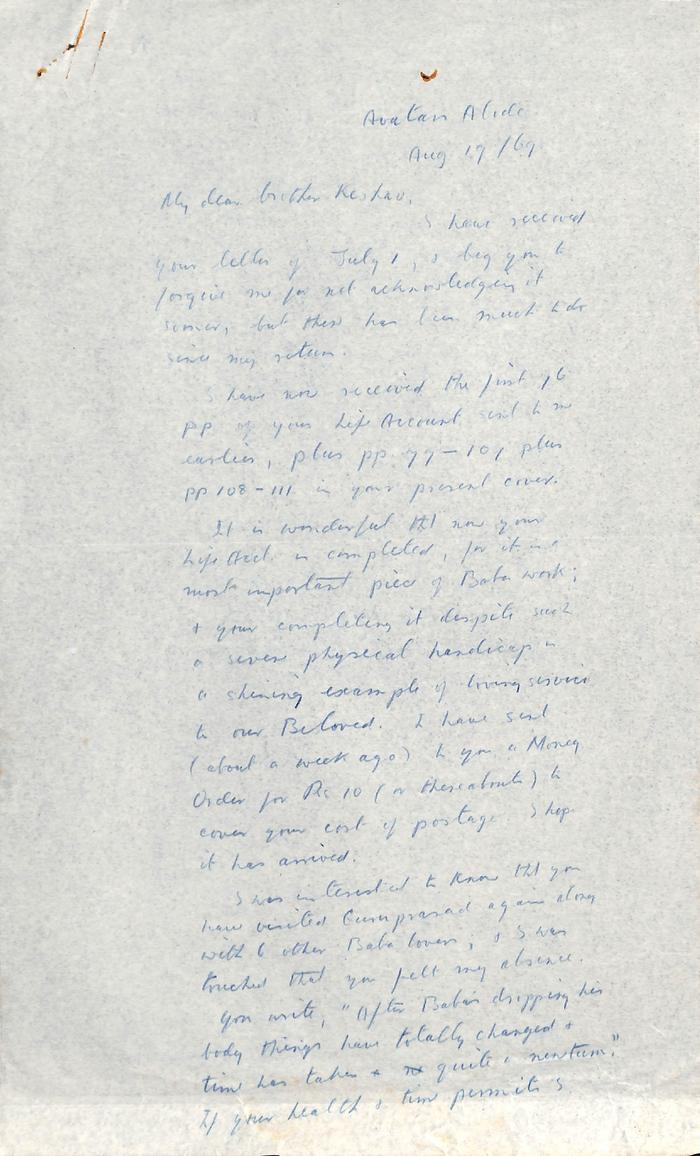 Avatar's Abode
Aug 19/69
My dear brother Keshav,
I have received
your letter of July 1, & beg you to
forgive me for not acknowledging it
sooner, but there has been much to do
since my return.
I have now received the first 76
pp of your Life Account sent to me
earlier, plus pp 77-107 plus
pp 108-111 in your present cover.
It is wonderful tht now your
Life Acct. is completed, for it is a
most important piece of Baba work;
+ your completing it despite such
a severe physical handicap is
a shining example of loving service
to our Beloved. I have sent
(about a week ago) to you a Money
Order for Rs 10 (or thereabouts) to
cover your cost of postage. I hope
it has arrived.
I was interested to know tht you
have visited Guruprasad again along
with 6 other Baba lovers; & I was
touched that you felt my absence.
You write, "After Baba's dropping his
body things have totally changed +
time has taken quite a new turn."
If your health & time permits I